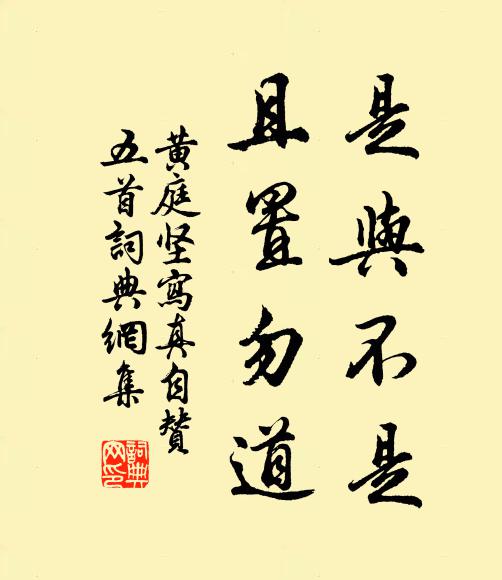 是與不是
且置勿道
黄庭坚寫真自赞
五首詞典網集
詞典
网印